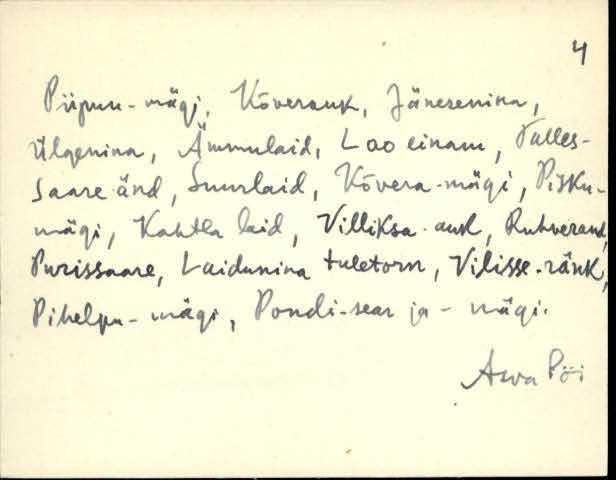 4
Piipuu-mägi, Kõverauk, Jänesenina,
Ülgenina, Ämmulaid, Lao einam, Valles-
saare änd, Suurlaid, Kõvera-mägi, Pisku-
mägi, Kahtla laid, Villiksa-auk, Ruhverand,
Purissaare, Laidunina tuletorn, Vilisse-ränk,
Pihelpu-mägi, Pondi-sear ja - mägi.
Asva Pöi